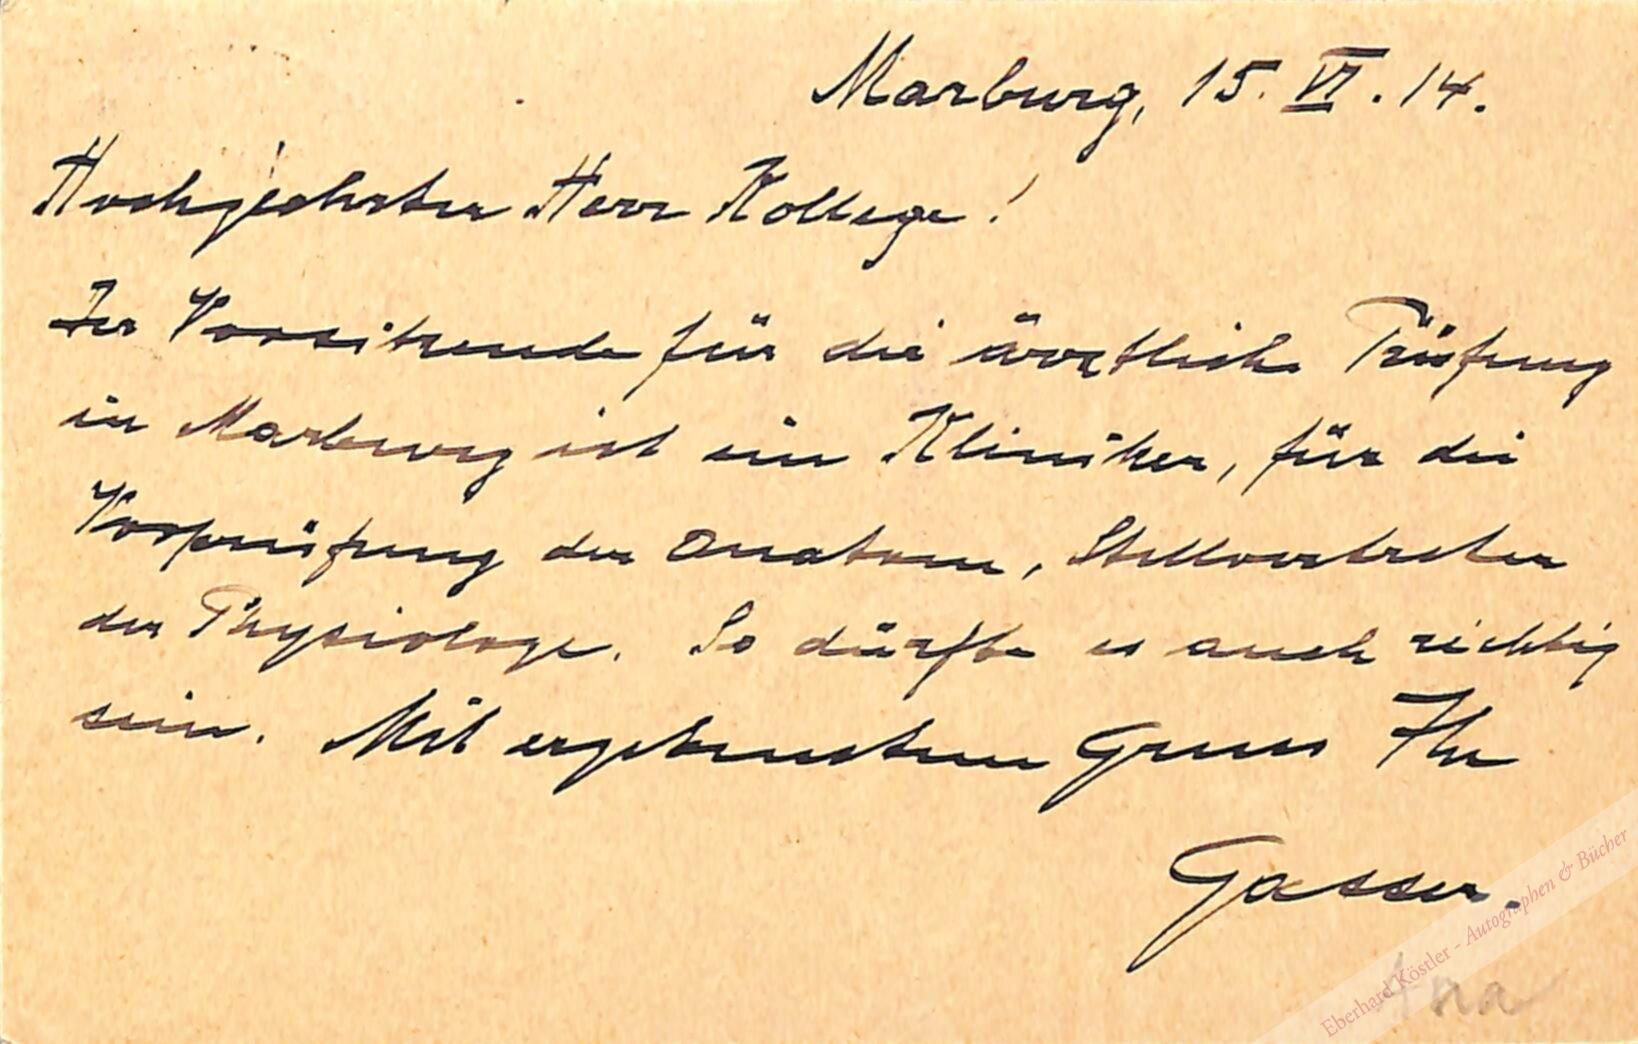 Marburg, 15. VI. 14.
Hochgeehrter Herr Kollege!
Der Vorsitzende für die ärztliche Prüfung
in Marburg ist ein Kliniker, für die
Vorprüfung der Anatom, Stellvertreter
der Physiologe. So dürfte es auch richtig
sein. Mit ergebenstem Gruss Ihr
Gasser.
Eberhard Köstler - Autographen & Bücher